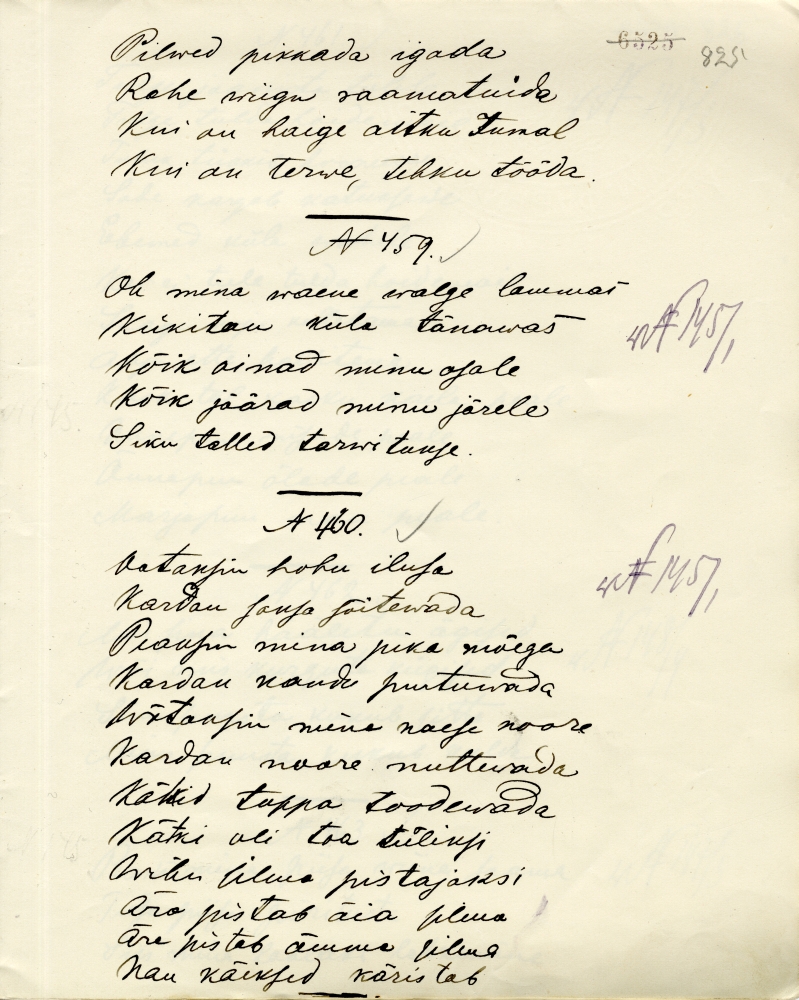 6525 825
Pilwed pikkada igada
Rahe wiigu raamatuida
Kui on haige aitku Jumal
Kui on terwe, tehku tööda.
N 459.
Oh mina waene walge lammas
Kükitan küla tänawas
Kõik oinad minu osale
Kõik jäärad minu järele
Siku talled tarwitanse.
N 460.
Wataksin hobu ilusa
Kardan sansa sõitewada
Peaksin mina pika mõega
Kardan kandu puutuwada
Wõtaksin mina naese noore
Kardan noore nuttewada
Kätkid tuppa toodewada
Kätki oli toa tüliksi
Wibu silma pistajaksi
Ära pistab äia silma
Ära pistab ämma silma
Nau käiksed käristab